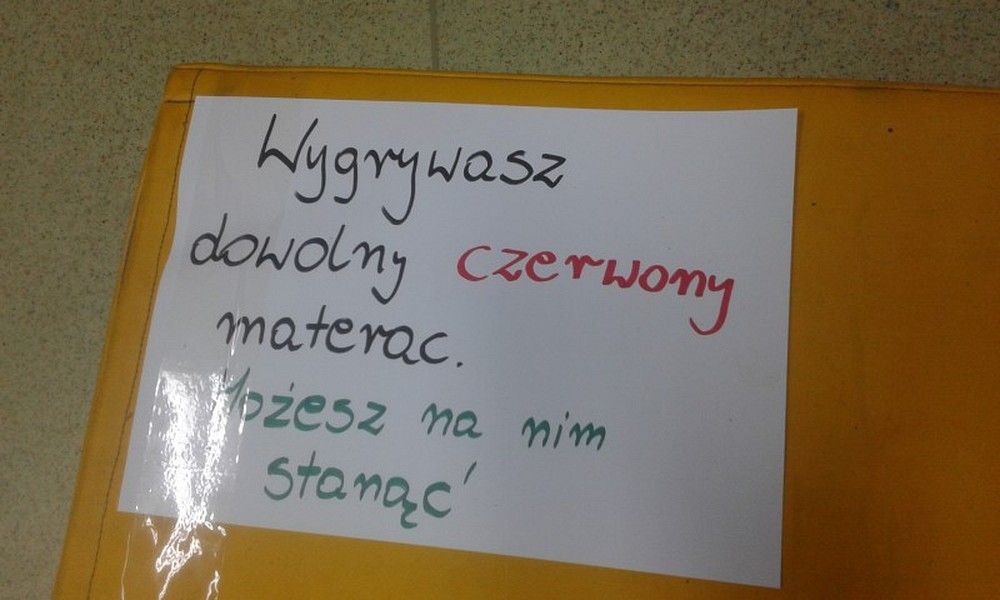 Wygrywasz
dowolny czerwony
materac.
Możesz na nim
stanąć